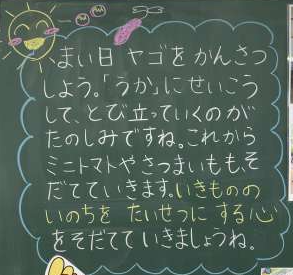 まい日 ヤゴを かんさつ
しよう。「うか」にせいこう
して、とび立っていくのが
たのしみですね。これから
ミニトマトや さつまいもも、そ
だてていきます。いきものの
いのちを たいせつに する心
をそだてていきましょうね。